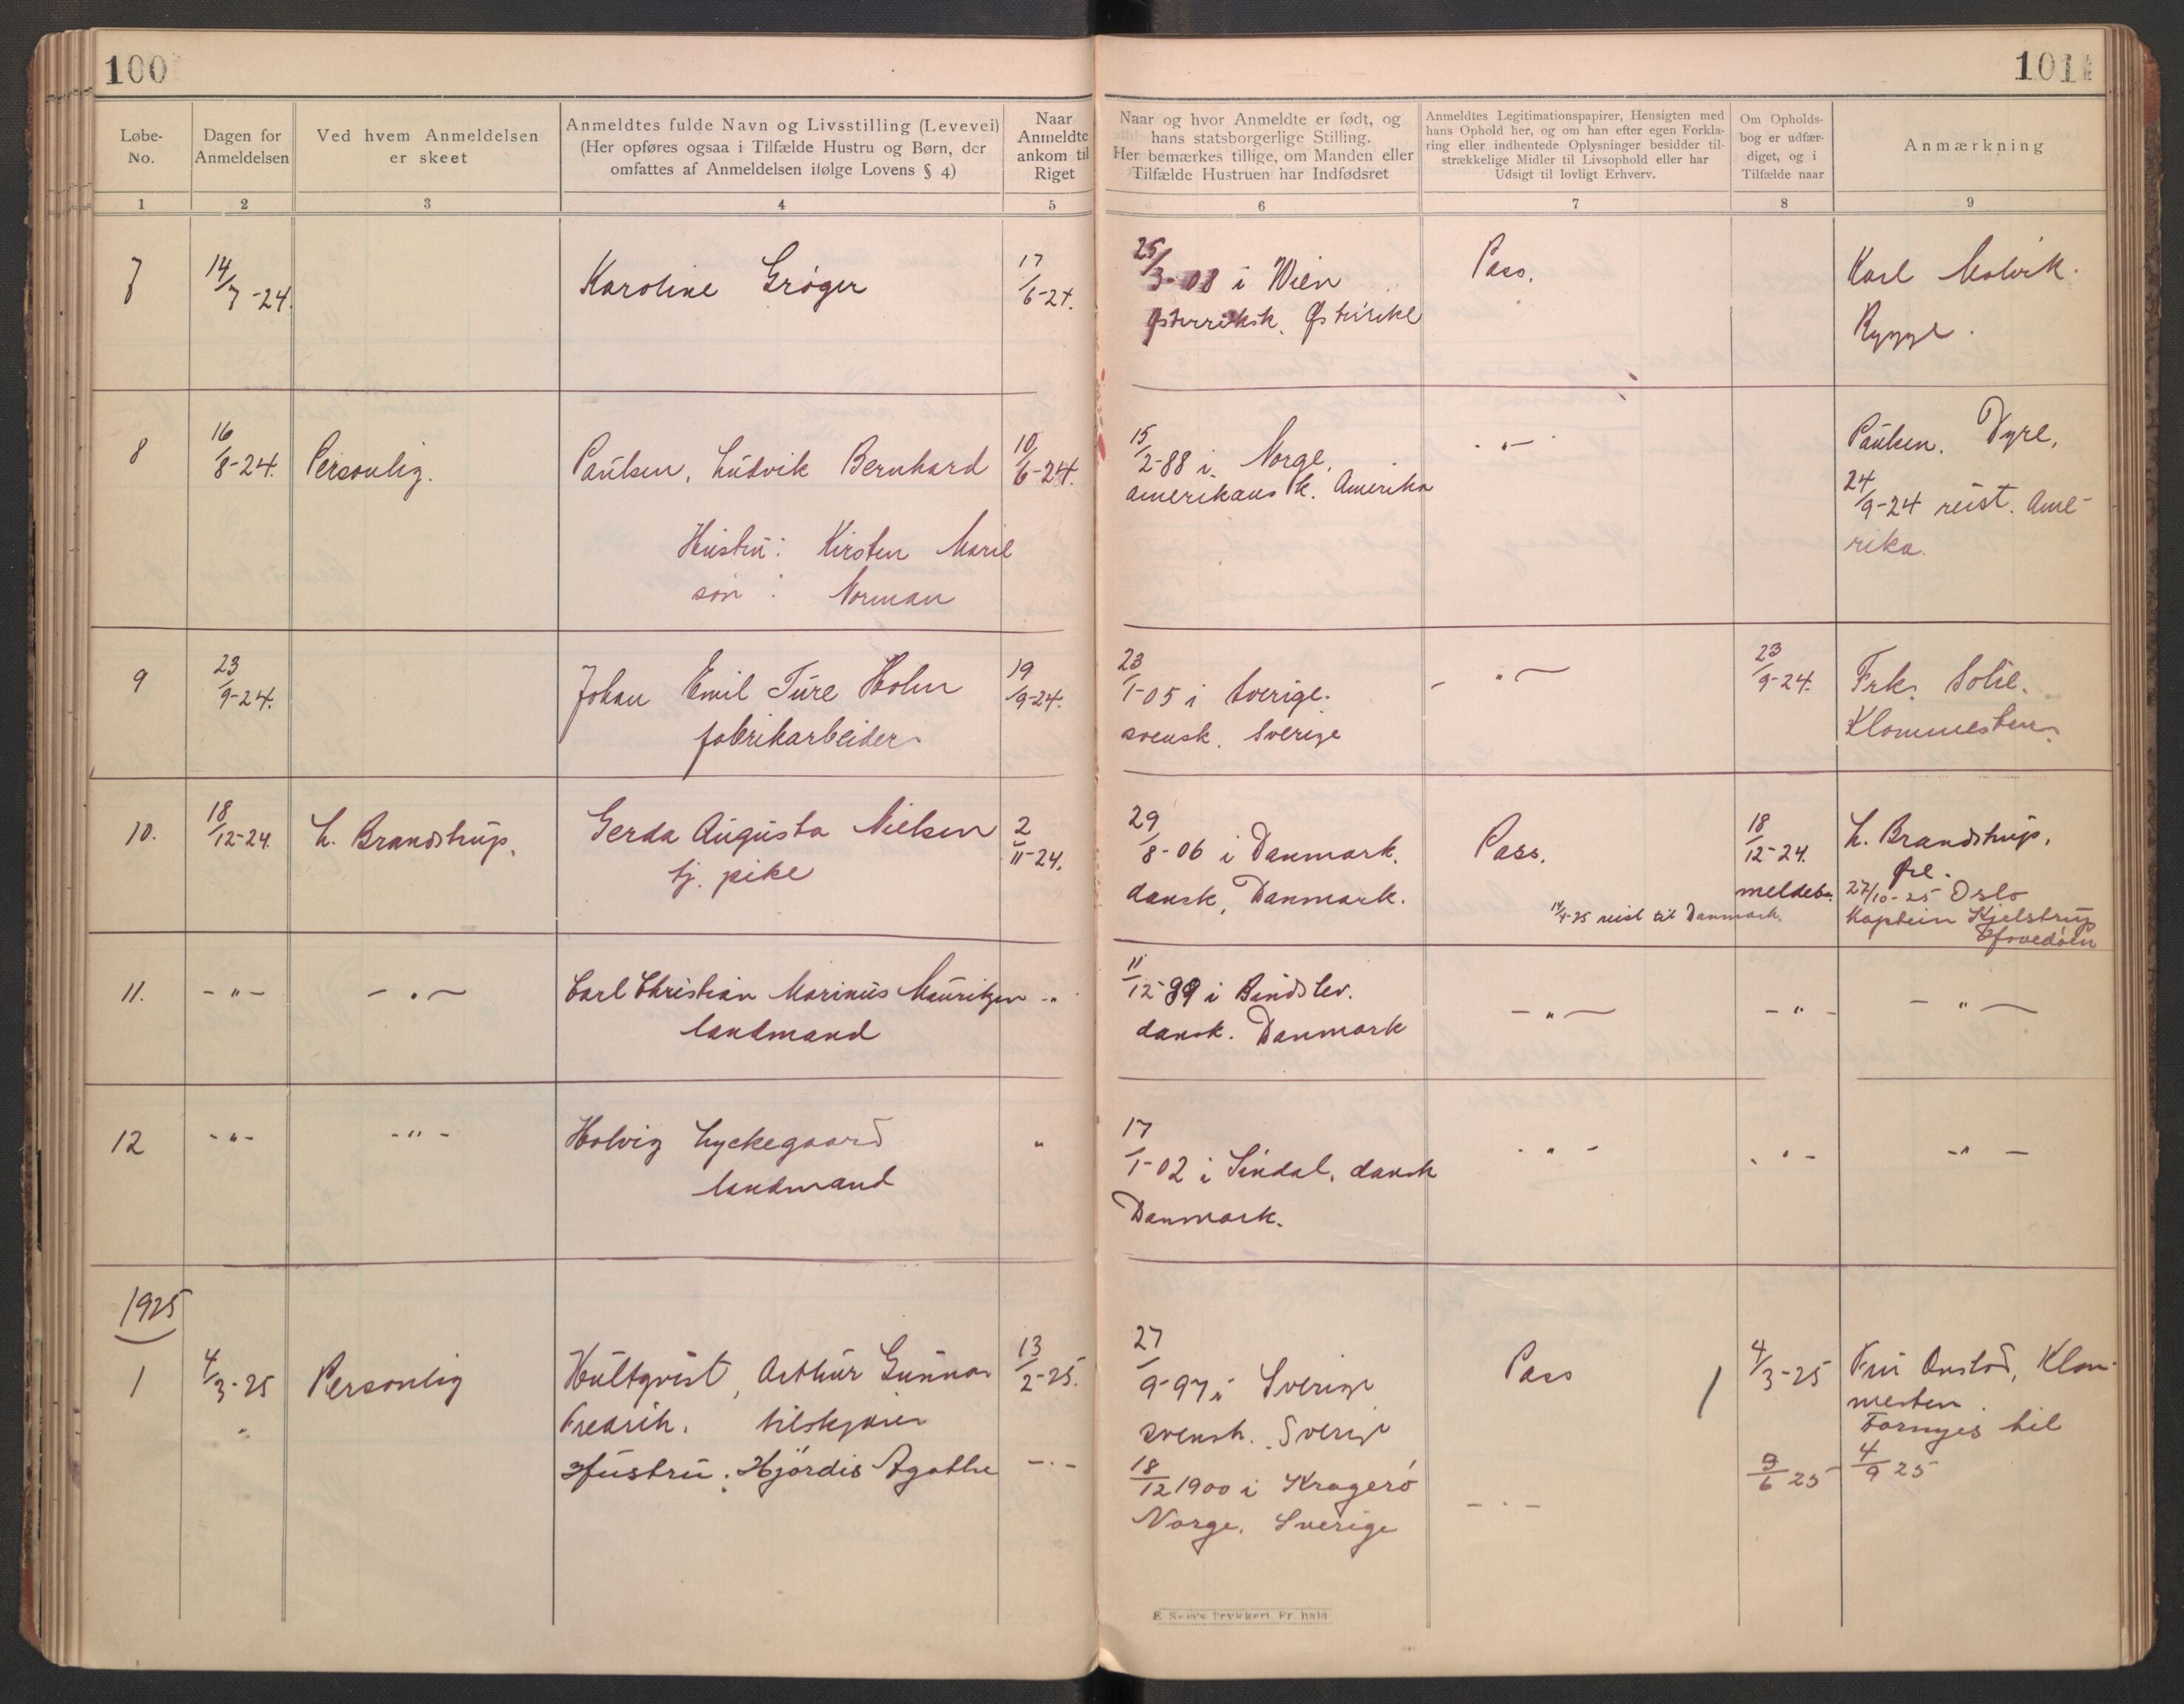 100
101
Løbe-
No.
Dagen for
Anmeldelsen
Ved hvem Anmeldelsen
er skeet
Anmeldtes fulde Navn og Livsstilling (Levevei)
(Her opføres ogsaa i Tilfælde Hustru og Børn, der
omfattes af Anmeldelsen ifølge Lovens § 4)
Naar
Anmeldte
ankom til
Riget
Naar og hvor Anmeldte er født, og
hans statsborgerlige Stilling.
Her bemærkes tillige, om Manden eller
Tilfælde Hustruen har Indfødsret
Anmeldtes Legitimationspapirer, Hensigten med
hans Ophold her, og om han efter egen Forkla-
ring eller indhentede Oplysninger besidder til-
strækkelige Midler til Livsophold eller har
Udsigt til lovligt Erhverv.
Om Opholds-
bog er udfær-
diget, og i
Tilfælde naar
Anmærkning
1 2 3 4 5 6 7 8 9
7
14/7-24.
Karoline Grøger
17/6-24.
25/3-08 i Wien
Østerriksk. Østerike
Pass.
Karl
Rygge.
8
16/8-24.
Personlig.
Paulsen, Ludvik Bernhard
Hustru: Kirsten Marie
søn : Norman
10/6-24.
15/2-88 i Norge,
amerikansk. Amerika
- " -
Paulsen. Dyre,
24/9-24 reist. Ame-
rika.
9
23/9-24.
Johan Emil Ture Holm
fabrikarbeider
19/9-24.
23/1-05 i Sverige.
svensk. Sverige
- " -
23/9-24.
Frk. Solie.
Klommesten.
10.
18/12-24.
L. Brandstrup.
Gerda Augusta Nielsen
tj. pike
2/11-24.
29/8-06 i Danmark.
dansk, Danmark.
Pass.
14/4-25 reist til Danmark.
18/12-24.
meldeb.
L. Brandstrup,
Øre.
27/10-25 Oslo
Kaptein Kjelstrup
Hovedøen
11.
- " -
- " -
Carl Christian Marinus Mauritzen
landmand
- "
11/12-89 i Bindslev.
dansk. Danmark
- " -
- " -
- " -
12
- " -
- " -
Holvig Lyckegaard
landmand
"
17/1-02 i Sindal, dansk
Danmark.
- " -
- " -
- " -
1925
1
4/3-25
"
Personlig
Hultqvist, Arthur Gunnar
Fredrik.
Hustru: Hjördis Agathe
13/2-25.
- " -
27/9-97 i Sverige
svensk. Sverige
18/12 1900 i Kragerö
Norge. Sverige
Pass
- " -
4/3-25
9/6 25
Fru Onstad, Klom-
mesten.
Fornyes til
4/9 25